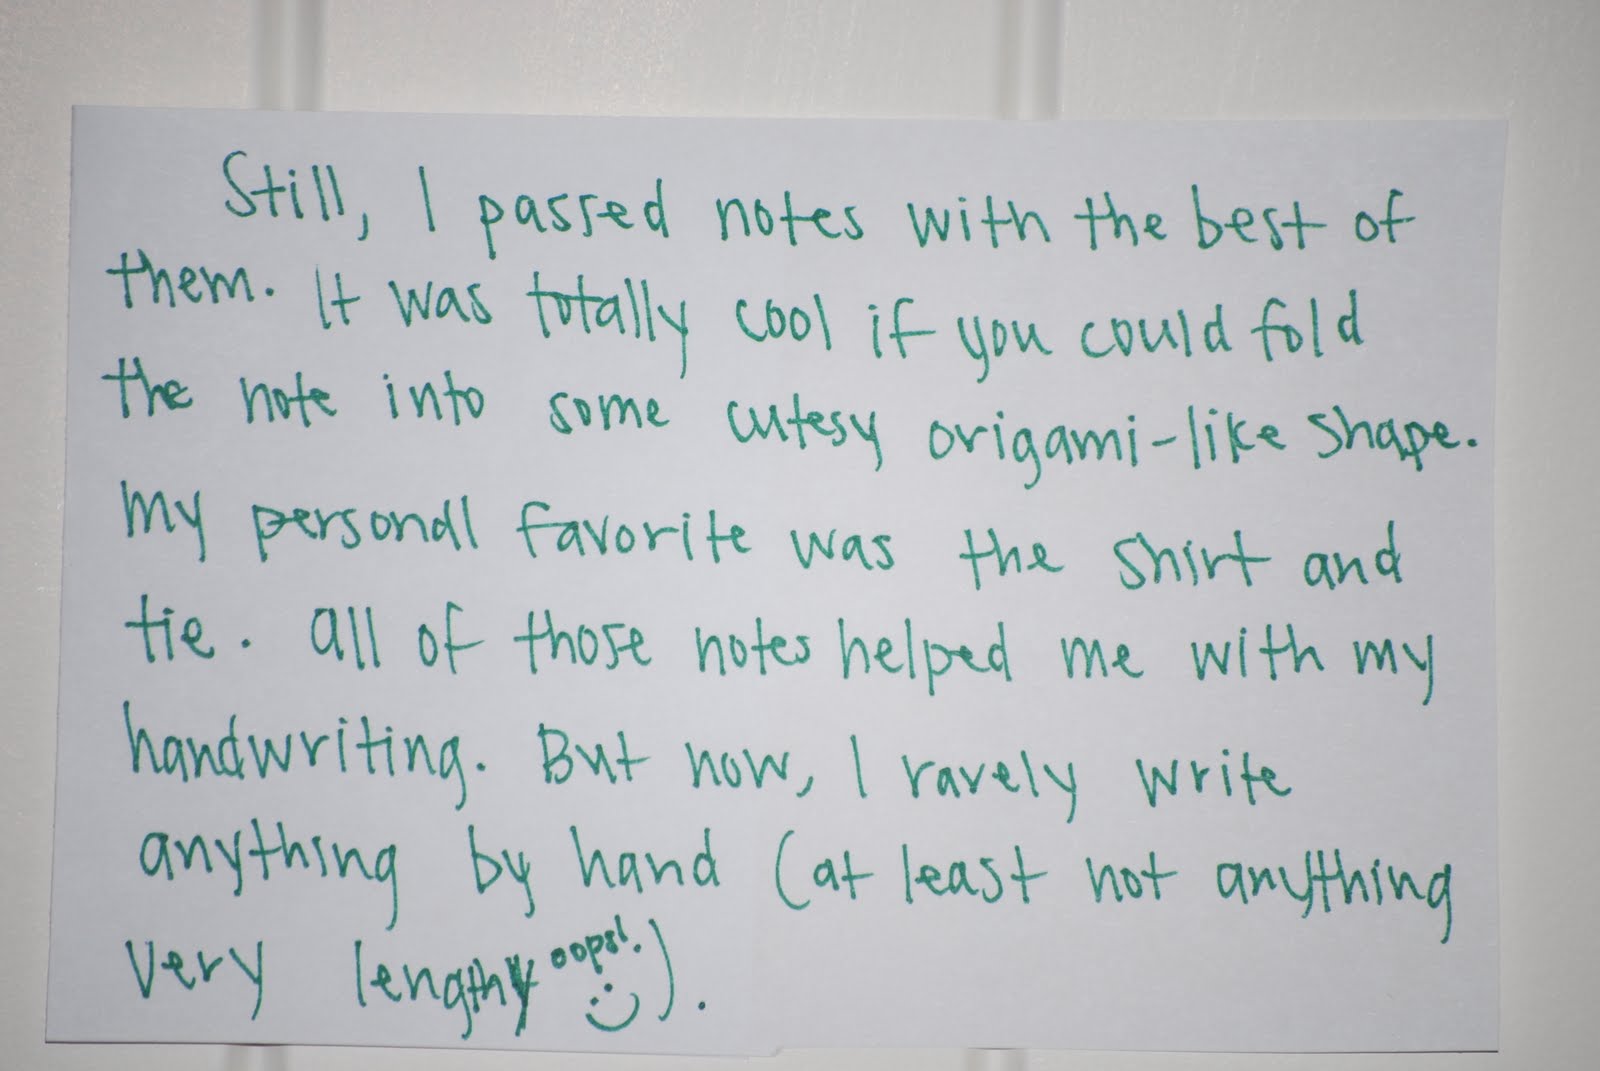 Still, I passed notes with the best of
them. It was totally cool if you could fold
the note into some cutesy origami-like shape.
My personal favorite was the shirt and
tie. All of those notes helped me with my
handwriting. But now, I rarely write
anything by hand (at least not anything
very lengthy oops! :)).